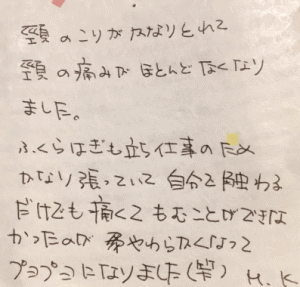 頸のこりがかなりとれて
頸の痛みがほとんどなくなり
ました。
ふくらはぎも立ち仕事のため
かなり張っていて自分で触わる
だけでも痛くてもむことができな
かったのが柔やわらかくなって
プヨプヨになりました(笑) M.K